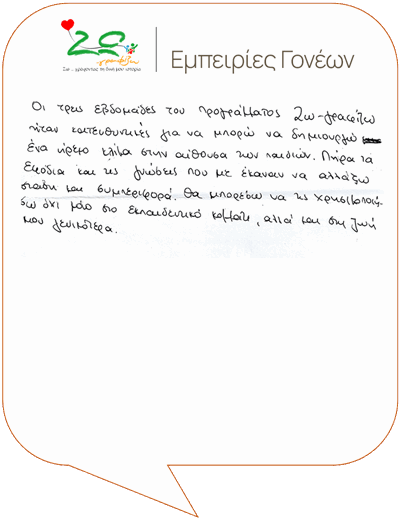 Ζω
γραφίζω
Ζω ... γράφοντας τη δική μου ιστορία
Εμπειρίες Γονέων
Οι τρεις εβδομάδες του προγράμματος Ζω-γραφίζω
ήταν κατευθυντικές για να μπορώ να δημιουργώ
ένα ήρεμο κλίμα στην αίθουσα των παιδιών. Πήρα τα
εφόδια και τις γνώσεις που με έκαναν να αλλάξω
στάση και συμπεριφορά. Θα μπορέσω να τις χρησιμοποιή-
σω όχι μόνο στο εκπαιδευτικό κομμάτι, αλλά και στη ζωή
μου γενικότερα.